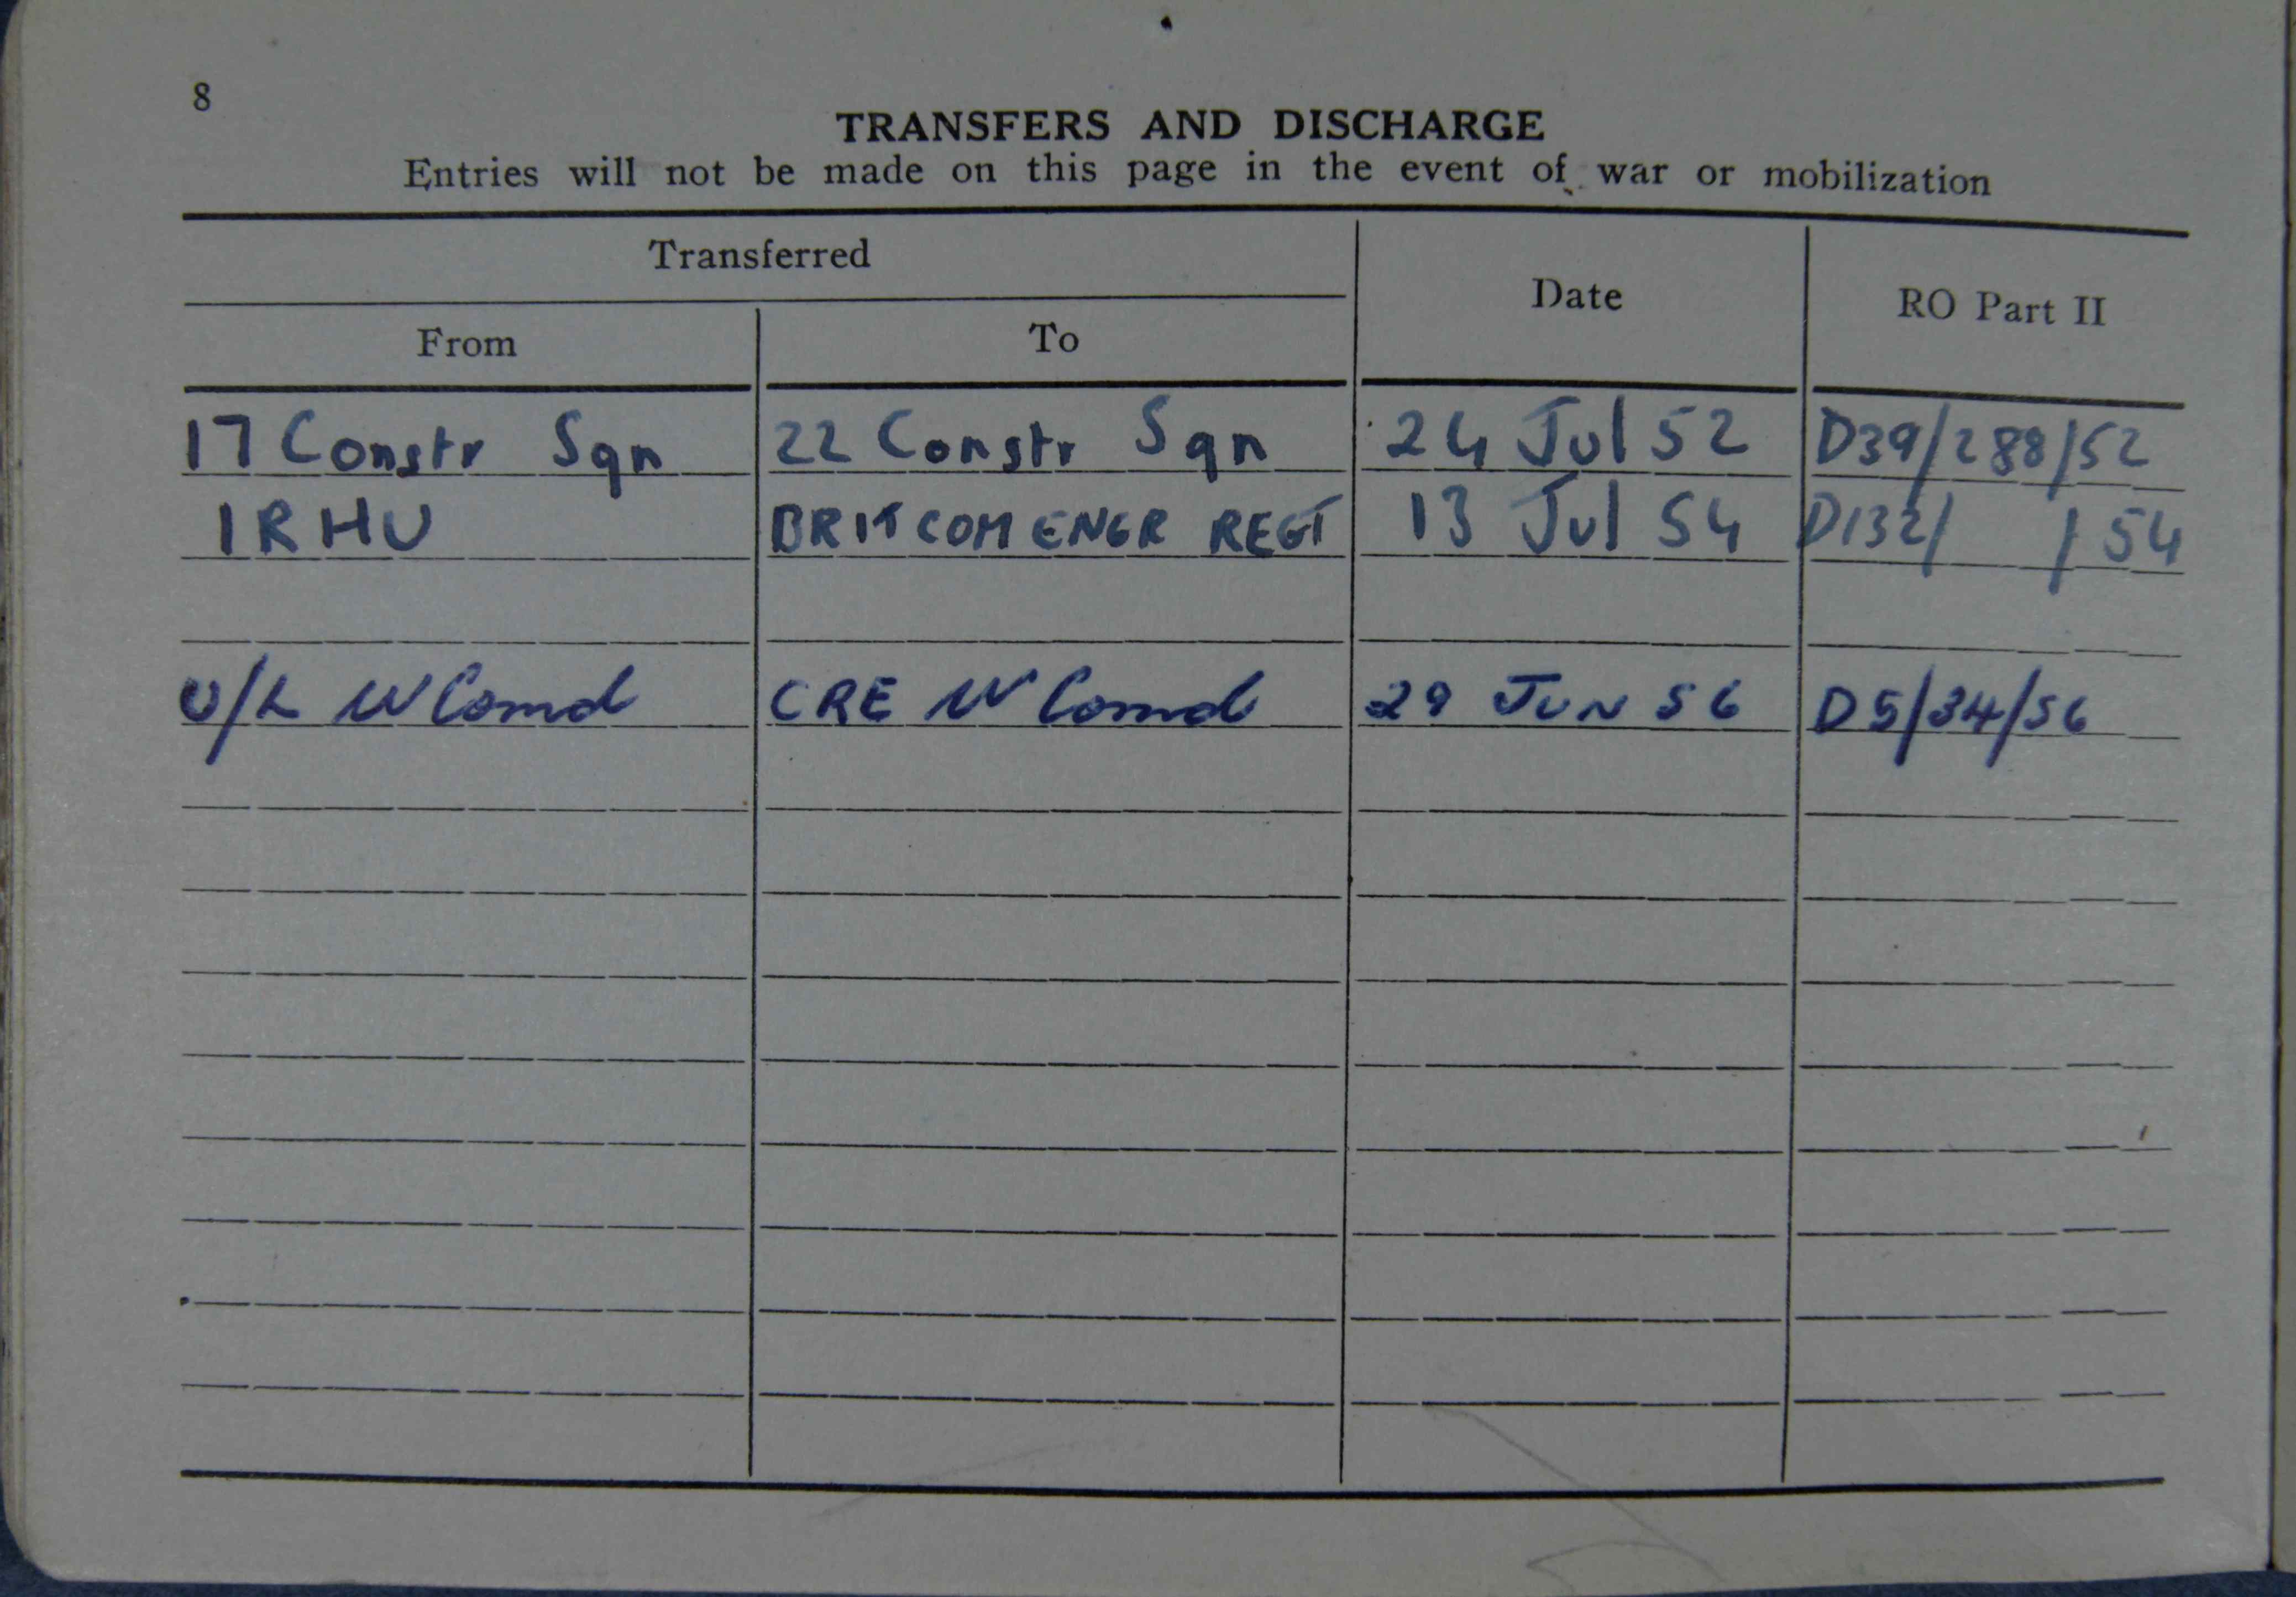 8
TRANSFERS AND DISCHARGE
Entries will not be made on this page in the event of war or mobilization
Transferred
Date
RO Part II
From
To
17 Constr Sqn 22 Constr Sqn 24 Jul 52 D39/288/52
1RHU BRITCOM ENGR REGT 13 Jul 54 D132/ /54
U/L W Comd CRE W Comd 29 JUN 56 D5/34/56